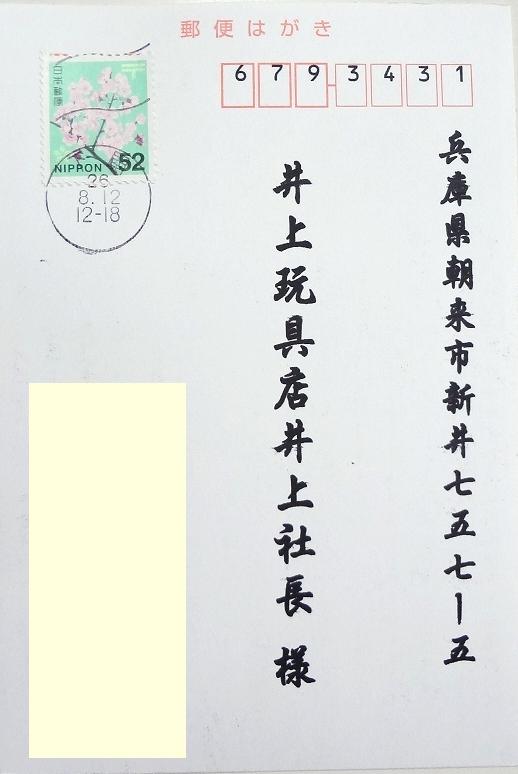 郵便はがき
日本郵便
NIPPON 52
26
8.12
12-18
679-3431
兵庫県朝来市新井七五七ー五
井上玩具店井上社長 様